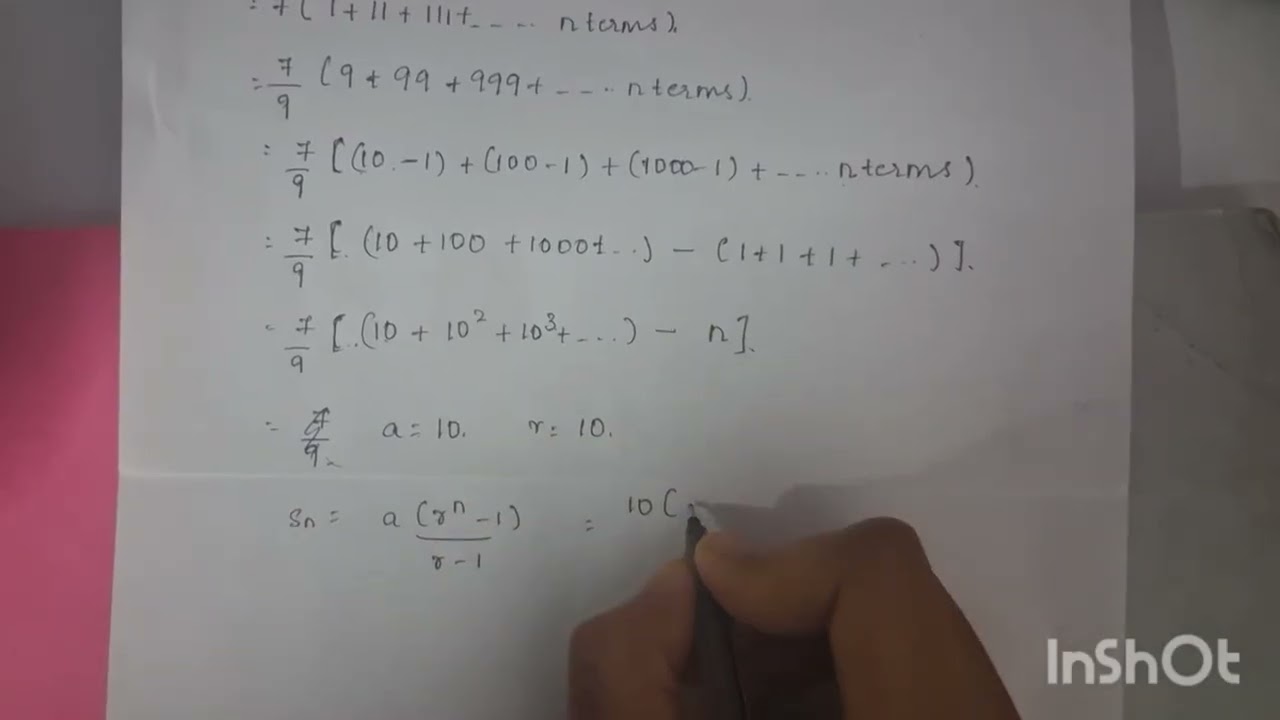 = 7 ( 1 + 11 + 111 + - - - .. n terms).
= 7/9 ( 9 + 99 + 999 + - - - .. n terms).
= 7/9 [ (10 - 1) + (100 - 1) + (1000 - 1) + - - - .. n terms ).
= 7/9 [ (10 + 100 + 1000 + - ..) - (1 + 1 + 1 + - ...) ].
= 7/9 [ (10 + 10² + 10³ + - ...) - n ].
= 7/9 a = 10. r = 10.
Sn = a (rⁿ - 1) / r - 1 = 10 (
InShOt